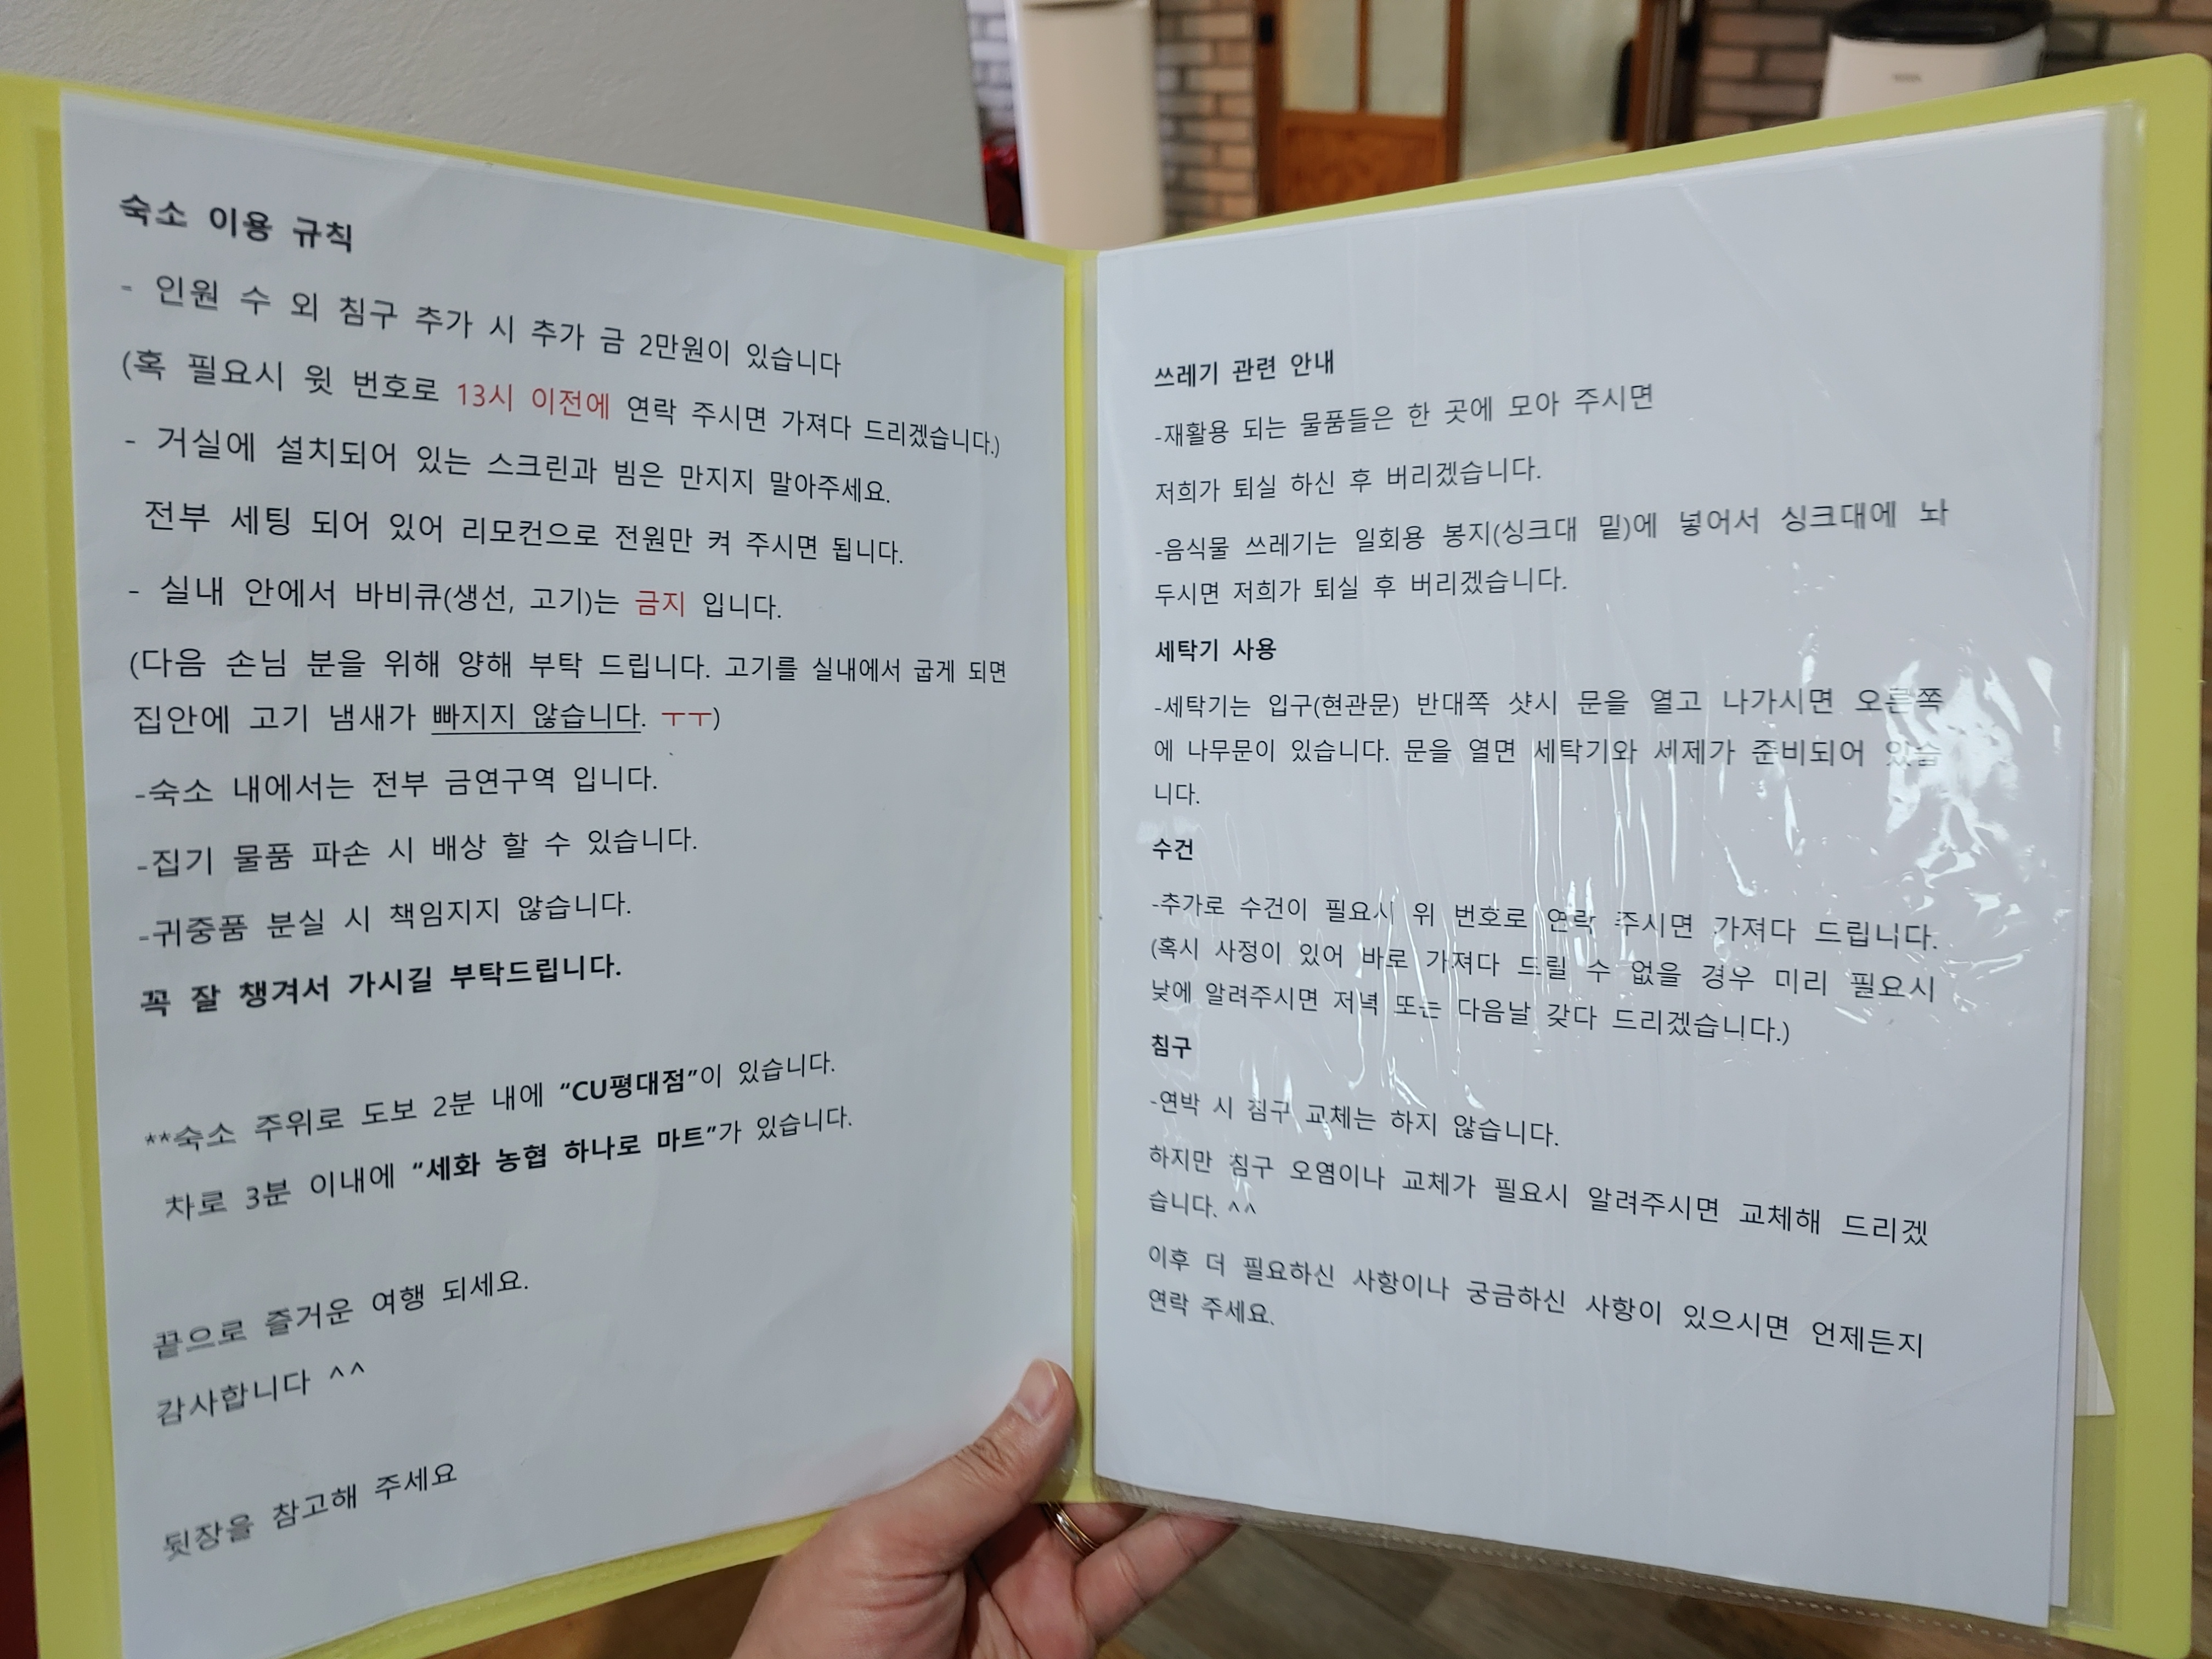 숙소 이용 규칙
- 인원 수 외 침구 추가 시 추가 금 2만원이 있습니다
(혹 필요시 윗 번호로 13시 이전에 연락 주시면 가져다 드리겠습니다.)
- 거실에 설치되어 있는 스크린과 빔은 만지지 말아주세요.
전부 세팅 되어 있어 리모컨으로 전원만 켜 주시면 됩니다.
- 실내 안에서 바비큐(생선, 고기)는 금지 입니다.
(다음 손님 분을 위해 양해 부탁 드립니다. 고기를 실내에서 굽게 되면
집안에 고기 냄새가 빠지지 않습니다. ㅜㅜ)
-숙소 내에서는 전부 금연구역 입니다.
-집기 물품 파손 시 배상 할 수 있습니다.
-귀중품 분실 시 책임지지 않습니다.
꼭 잘 챙겨서 가시길 부탁드립니다.
**숙소 주위로 도보 2분 내에 “CU평대점”이 있습니다.
차로 3분 이내에 “세화 농협 하나로 마트”가 있습니다.
끝으로 즐거운 여행 되세요.
감사합니다 ^^
뒷장을 참고해 주세요
쓰레기 관련 안내
-재활용 되는 물품들은 한 곳에 모아 주시면
저희가 퇴실 하신 후 버리겠습니다.
-음식물 쓰레기는 일회용 봉지(싱크대 밑)에 넣어서 싱크대에 놔
두시면 저희가 퇴실 후 버리겠습니다.
세탁기 사용
-세탁기는 입구(현관문) 반대쪽 샷시 문을 열고 나가시면 오른쪽
에 나무문이 있습니다. 문을 열면 세탁기와 세제가 준비되어 있습
니다.
수건
-추가로 수건이 필요시 위 번호로 연락 주시면 가져다 드립니다.
(혹시 사정이 있어 바로 가져다 드릴 수 없을 경우 미리 필요시
낮에 알려주시면 저녁 또는 다음날 갖다 드리겠습니다.)
침구
-연박 시 침구 교체는 하지 않습니다.
하지만 침구 오염이나 교체가 필요시 알려주시면 교체해 드리겠
습니다. ^^
이후 더 필요하신 사항이나 궁금하신 사항이 있으시면 언제든지
연락 주세요.